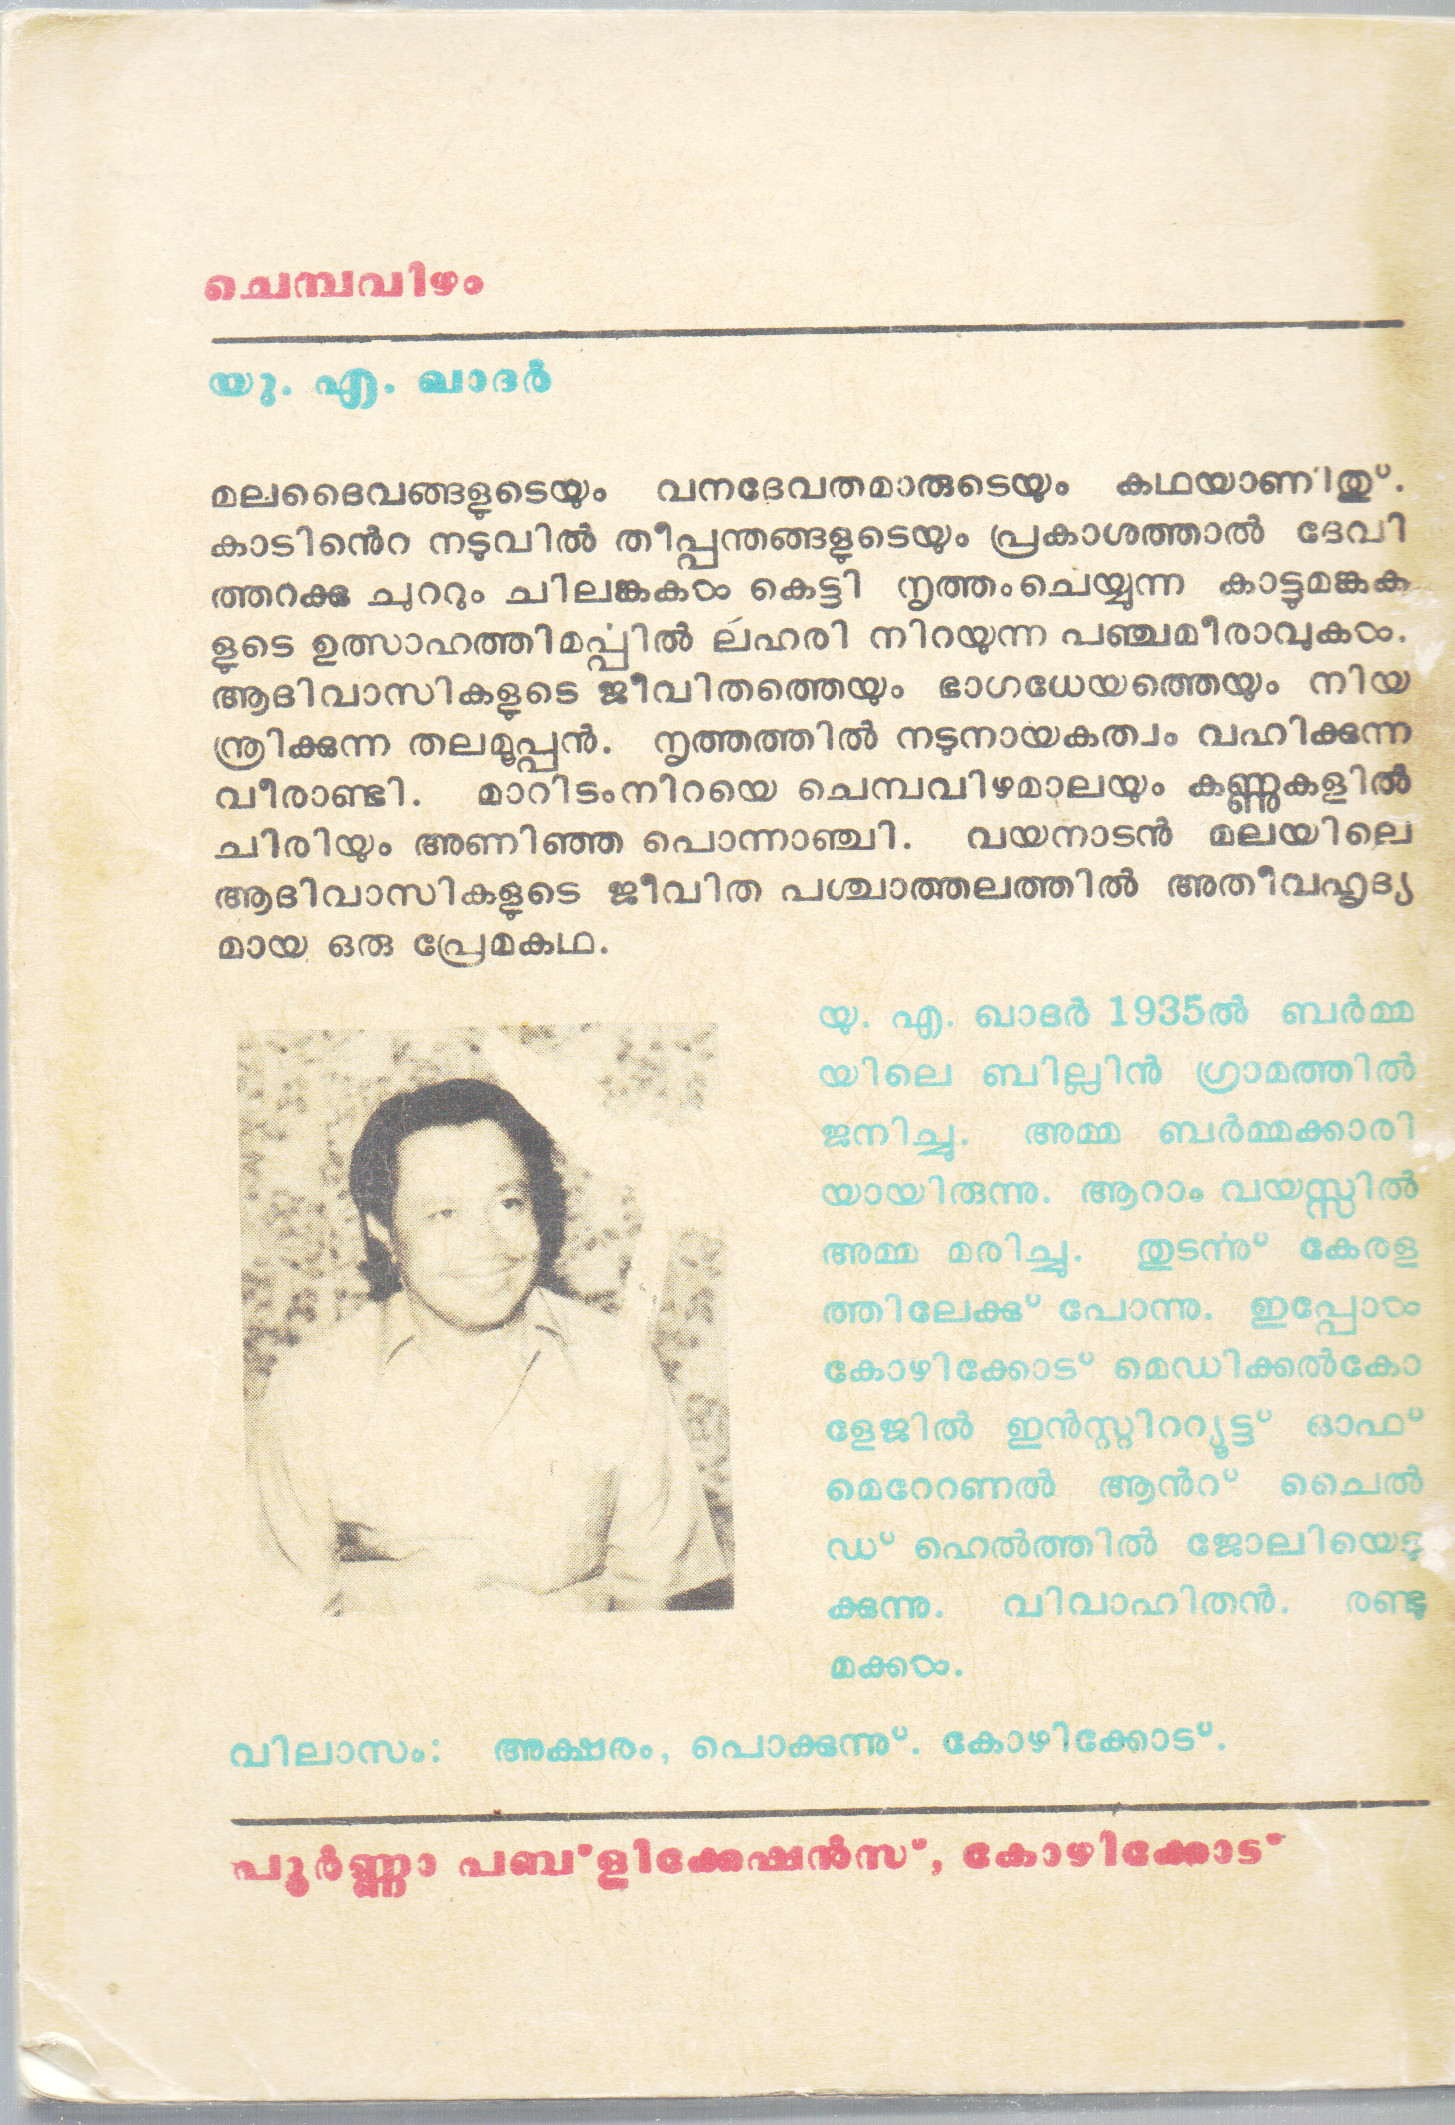 ചെമ്പവിഴം
യു. എ. ഖാദർ
മലദൈവങ്ങളുടെയും വനദേവതമാരുടെയും കഥയാണിതു്.
കാടിൻെറ നടുവിൽ തീപ്പന്തങ്ങളുടെയും പ്രകാശത്താൽ ദേവി
ത്തറക്കു ചുററും ചിലങ്കകൾ കെട്ടി നൃത്തംചെയ്യുന്ന കാട്ടുമങ്കക
ളുടെ ഉത്സാഹത്തിമപ്പിൽ ലഹരി നിറയുന്ന പഞ്ചമീരാവുകൾ.
ആദിവാസികളുടെ ജീവിതത്തെയും ഭാഗധേയത്തെയും നിയ
ന്ത്രിക്കുന്ന തലമൂപ്പൻ. നൃത്തത്തിൽ നടുനായകത്വം വഹിക്കുന്ന
വീരാണ്ടി. മാറിടംനിറയെ ചെമ്പവിഴമാലയും കണ്ണുകളിൽ
ചിരിയും അണിഞ്ഞ പൊന്നാഞ്ചി. വയനാടൻ മലയിലെ
ആദിവാസികളുടെ ജീവിത പശ്ചാത്തലത്തിൽ അതീവഹൃദ്യ
മായ ഒരു പ്രേമകഥ.
യു. എ. ഖാദർ 1935ൽ ബർമ്മ
യിലെ ബില്ലിൻ ഗ്രാമത്തിൽ
ജനിച്ചു. അമ്മ ബർമ്മക്കാരി
യായിരുന്നു. ആറാം വയസ്സിൽ
അമ്മ മരിച്ചു. തുടന്നു് കേരള
ത്തിലേക്കു് പോന്നു. ഇപ്പോൾ
കോഴിക്കോട് മെഡിക്കൽകോ
ളേജിൽ ഇൻസ്റ്റിററ്യൂട്ട് ഓഫ്
മെറേറണൽ ആൻറ് ചൈൽ
ഡ് ഹെൽത്തിൽ ജോലിയെടു
ക്കുന്നു. വിവാഹിതൻ. രണ്ടു
മക്കൾ.
വിലാസം: അക്ഷരം, പൊക്കുന്നു്. കോഴിക്കോട്.
പൂർണ്ണാ പബ്ളിക്കേഷൻസ്, കോഴിക്കോട്